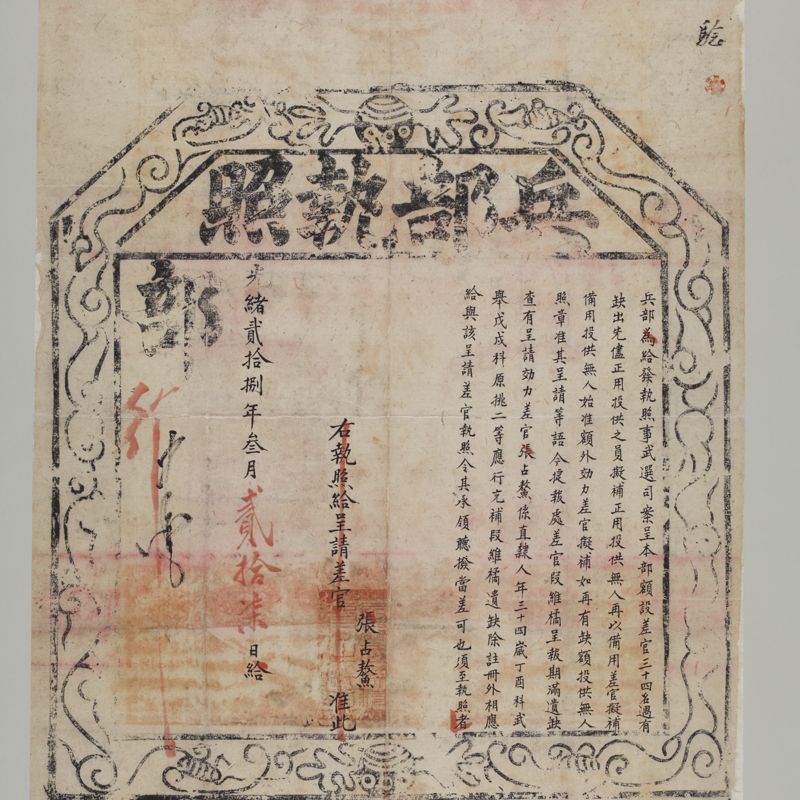 兵部執照
兵部為給發執照事武選司案呈本部額設差官三十四名遇有
缺出先儘正用投供之員擬補正用投供無人再以備用差官擬補
備用投供無人始准額外効力差官擬補如再有缺額投供無人
照章准其呈請等語今捷報處差官段維橘呈報期滿遺缺
查有呈請効力差官張占鰲係直隸人年三十四歲丁酉科武
舉戊戌科原挑二等應行充補段維橘遺缺除註冊外相應
給與該呈請差官執照令其承領聽撥當差可也須至執照者
右執照給呈請差官張占鰲准此
光緒貳拾捌年叁月貳拾柒日給
部